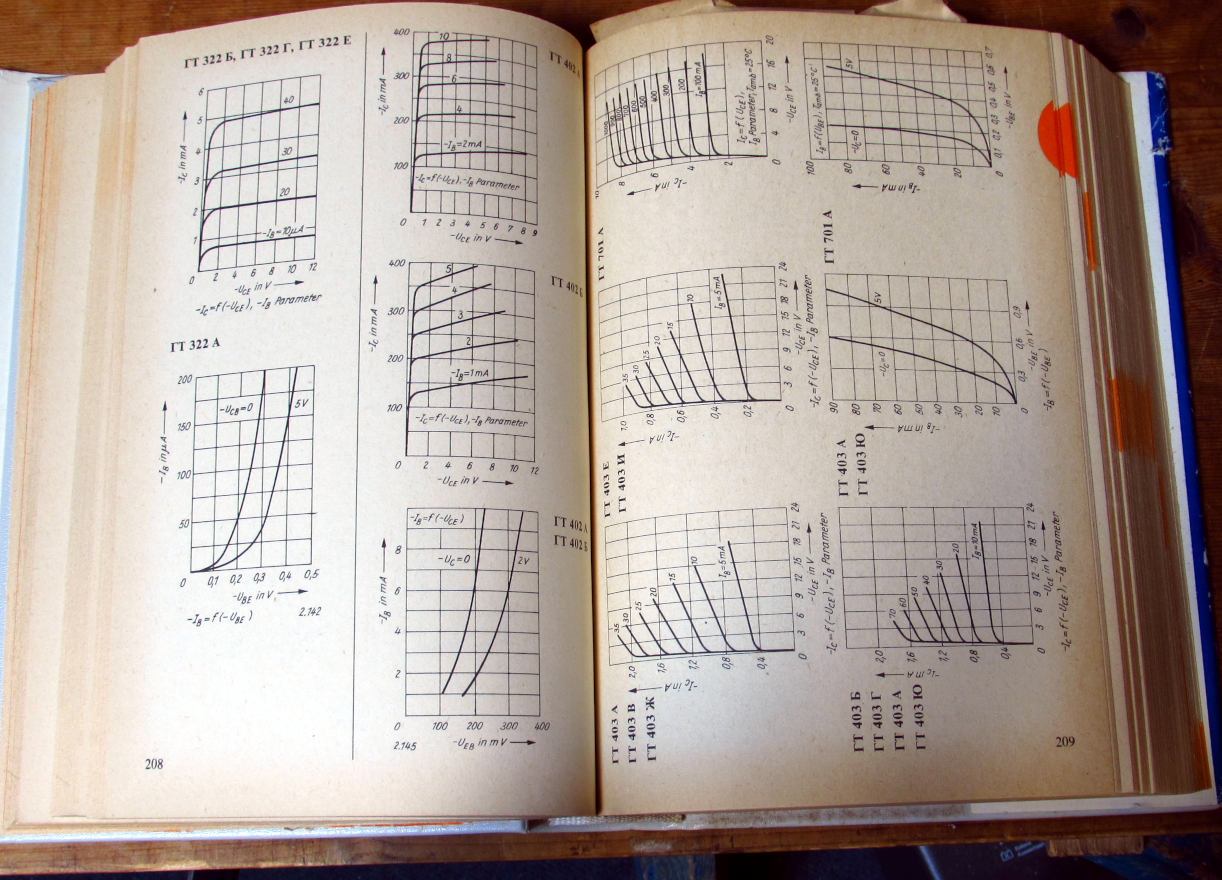 ГТ 322 Б, ГТ 322 Г, ГТ 322 Е
-I_C in mA
6
5
4
3
2
1
0
40
30
20
-I_B=10μA
2 4 6 8 10 12
-U_CE in V
-I_C=f(-U_CE), -I_B Parameter
ГТ 322 А
-I_B in μA
200
150
100
50
0
-U_CB=0
5V
0,1 0,2 0,3 0,4 0,5
-U_BE in V
-I_B=f(-U_BE)
2.142
208
ГТ 402 А
-I_C in mA
400
300
200
100
10
8
6
4
-I_B=2mA
-I_C=f(-U_CE), -I_B Parameter
1 2 3 4 5 6 7 8 9
-U_CE in V
ГТ 402 Б
-I_C in mA
400
300
200
100
5
4
3
2
-I_B=1mA
-I_C=f(-U_CE), -I_B Parameter
0 2 4 6 8 10 12
-U_CE in V
ГТ 402 А
ГТ 402 Б
-I_B=f(-U_CE)
-U_C=0
2V
-I_B in mA
8
6
4
2
0 100 200 300 400
-U_EB in mV
2.145
ГТ 701 А
-I_C in A
10
8
6
4
2
500
400
300
200
I_B=100mA
I_C=f(U_CE),
I_B Parameter, T_amb=25°C
0 4 8 12 16 20
-U_CE in V
ГТ 701 А
-I_B in mA
100
80
60
40
20
I_B=f(U_BE), T_amb=25°C
-U_C=0
5V
0 0,1 0,2 0,3 0,4 0,5 0,6 0,7
-U_BE in V
ГТ 403 Е
ГТ 403 И
-I_C in A
1,0
0,8
0,6
0,4
0,2
35
30
25
20
15
10
I_B=5mA
0 3 6 9 12 15 18 21 24
-U_CE in V
-I_C=f(-U_CE), -I_B Parameter
ГТ 403 А
ГТ 403 Ю
-I_B in mA
90
80
70
60
50
40
30
20
10
-U_C=0
5V
0 0,3 0,6 0,9
-U_BE in V
-I_B=f(-U_BE)
ГТ 403 А
ГТ 403 В
ГТ 403 Ж
-I_C in A
2,0
1,6
1,2
0,8
0,4
35
30
25
20
15
10
I_B=5mA
0 3 6 9 12 15 18 21 24
-U_CE in V
-I_C=f(-U_CE), -I_B Parameter
ГТ 403 Б
ГТ 403 Г
ГТ 403 А
ГТ 403 Ю
-I_C in A
2,0
1,6
1,2
0,8
0,4
70
60
50
40
30
20
I_B=10mA
0 3 6 9 12 15 18 21 24
-U_CE in V
-I_C=f(-U_CE), -I_B Parameter
209